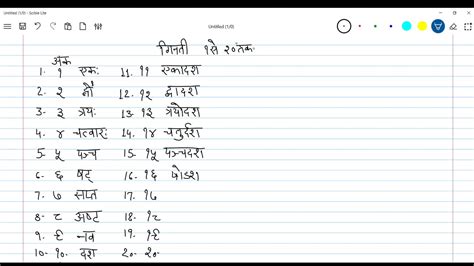 Untitled (1/0) - Scribble Lite
Untitled (1/0)
गिनती १से २०तक
अंक
1. १ एकः 11. ११ एकादश
2. २ द्वौ 12. १२ द्वादश
3. ३ त्रयः 13. १३ त्रयोदश
4. ४ चत्वारः 14. १४ चतुर्दश
5. ५ पञ्च 15. १५ पञ्चदश
6. ६ षट् 16. १६ षोडश
7. ७ सप्त 17. १७
8. ८ अष्ट 18. १८
9. ९ नव 19. १९
10. १०. दश 20. २०.